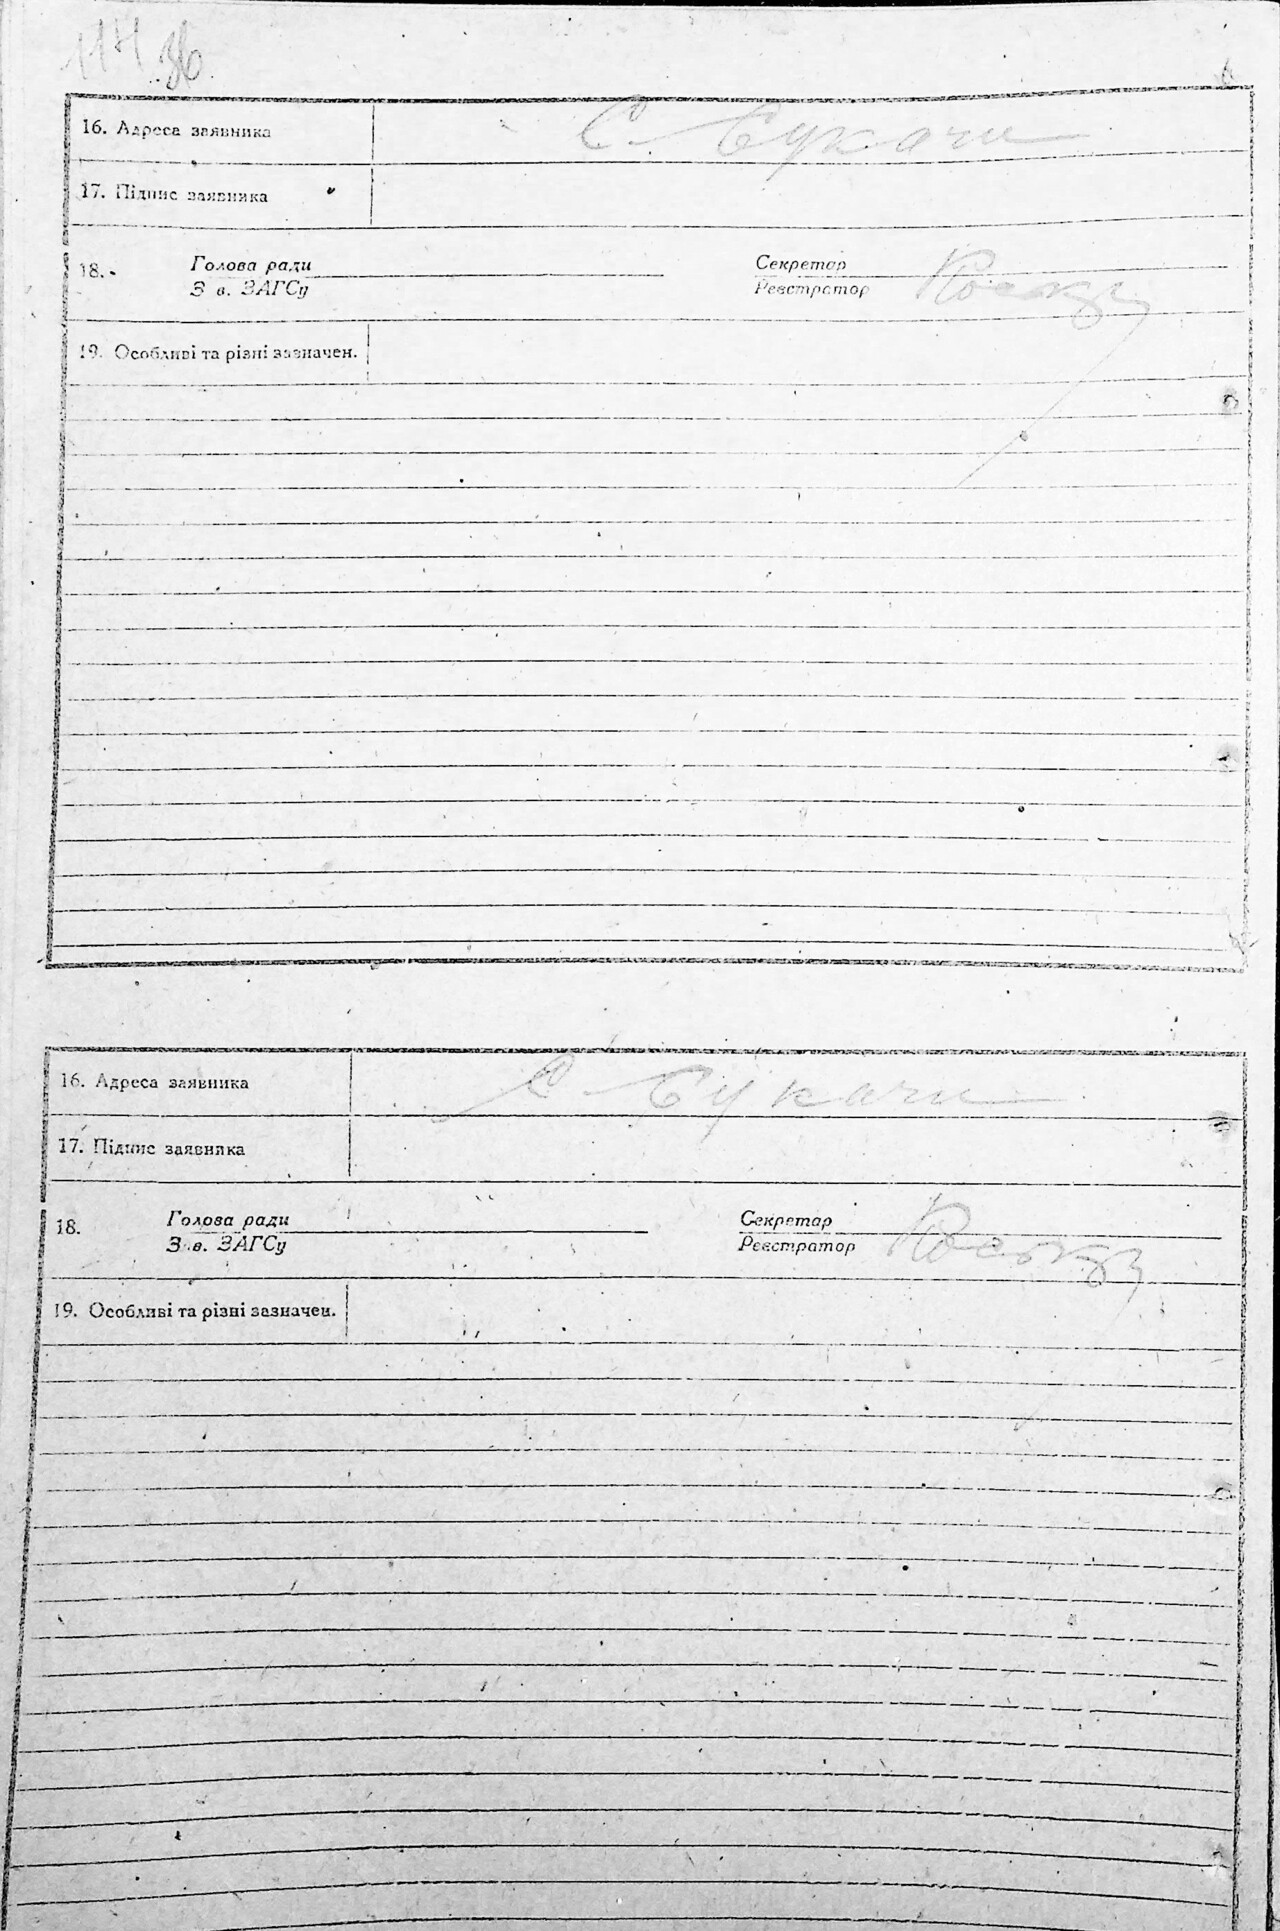 114 36
16. Адреса заявника С. Сукачи
17. Підпис заявника
18. Голова ради Секретар
З в. ЗАГСу Реєстратор
19. Особливі та різні зазначен.
16. Адреса заявника С. Сукачи
17. Підпис заявника
18. Голова ради Секретар
З в. ЗАГСу Реєстратор
19. Особливі та різні зазначен.